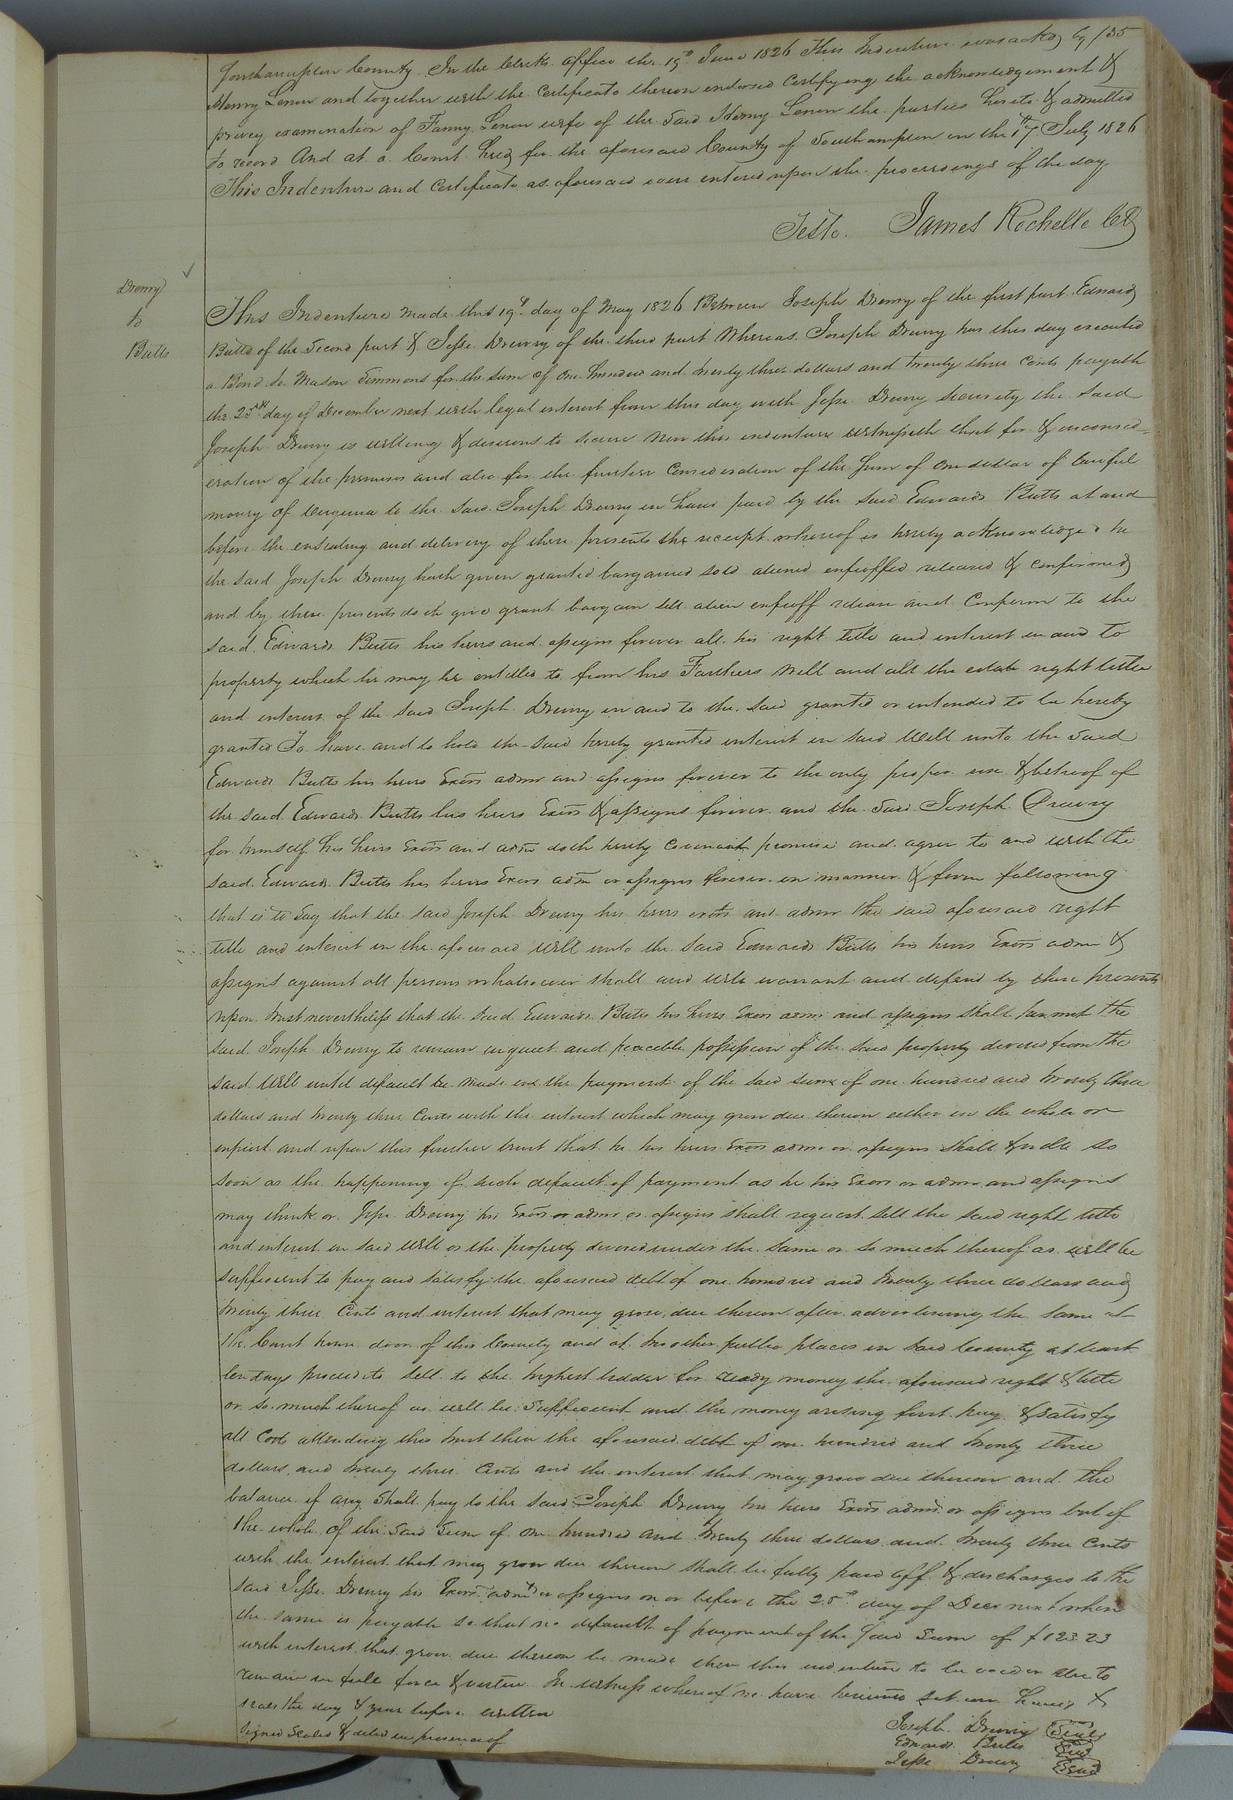 135
Southampton County In the Clerks office the 19th June 1826 This Indenture was ackd by
Henry Lenow and together with the Certificate thereon endorsed Certifying the acknowledgement &
privey examination of Fanny Lenow wife of the said Henry Lenow the parties hereto & admitted
to record And at a Court held for the aforesaid County of Southampton on the 17th July 1826
This Indenture and Certificate as aforesaid were entered upon the proceedings of the day
Teste. James Rochelle CC
Drewry
to
Butts
This Indenture made this 19th day of May 1826 Between Joseph Drewry of the first part Edward
Butts of the Second part & Jesse Drewry of the third part Whereas Joseph Drewry has this day executed
a Bond to Mason Simmons for the sum of one hundred and twenty three dollars and twenty three Cents payable
the 25th day of December next with legal interest from this day with Jesse Drewry security the said
Joseph Drewry is willing & desirous to secure Now this indenture witnesseth that for & inconsid-
eration of the premises and also for the further Consideration of the Sum of one dollar of lawful
money of Virginia to the said Joseph Drewry in hand paid by the said Edward Butts at and
before the ensealing and delivery of these presents the receipt whereof is hereby acknowledged he
the said Joseph Drewry hath given granted bargained sold aliened enfeoffed released & confirmed
and by these presents doth give grant bargain sell alien enfeoff release and Confirm to the
said Edward Butts his heirs and assigns forever all his right title and interest in and to
property which he may be entitled to from his Farthers Will and all the estate right title
and interest of the said Joseph Drewry in and to the said granted or intended to be hereby
granted To have and to hold the said hereby granted interest in said Will unto the said
Edward Butts his heirs Exors admrs and assigns forever to the only proper use & behoof of
the said Edward Butts his heirs Exors & assigns forever and the said Joseph Drewry
for himself his heirs Exors and adm doth hereby Covenant promise and agree to and with the
said Edward Butts his heirs Exors adm or assigns forever in manner & form following
that is to say that the said Joseph Drewry his heirs exors and admr the said aforesaid right
title and interest in the aforesaid Will unto the said Edward Butts his heirs Exors adm &
assigns against all persons whatsoever shall and will warrant and defend by these presents
upon trust nevertheless that the said Edward Butts his heirs Exors adms and assigns shall permit the
said Joseph Drewry to remain in quiet and peaceble possession of the said property devised from the
said Will until default be made in the payment of the said sum of one hundred and twenty three
dollars and twenty three Cents with the interest which may grow due thereon either in the whole or
inpart and upon this further trust that he his heirs Exors adms or assigns shall & will so
soon as the happening of such default of payment as he his Exors or adms and assigns
may think or Jesse Drewry his Exors or adms or assigns shall request sell the said right title
and interest in said Will or the property devised under the same or so much thereof as will be
sufficient to pay and satisfy the aforesaid debt of one hundred and twenty three dollars and
twenty three Cents and interest that may grow due thereon after advertiseing the same at
the Court house door of this County and at two other public places in said County at least
ten days proceed to sell to the highest bidder for ready money the aforesaid right & title
or so much thereof as will be sufficient and the money arising first pay & satisfy
all Cost attending this trust then the aforesaid debt of one hundred and twenty three
dollars and twenty three Cents and the interest that may grow due thereon and the
balance if any shall pay to the said Joseph Drewry his heirs Exors adms or assigns but if
the whole of the said sum of one hundred and twenty three dollars and twenty three Cents
with the interest that may grow due thereon shall be fully paid off & discharged to the
said Jesse Drewry his Exors adms or assigns on or before the 25th day of Decr next when
the same is payable so that no default of payment of the said sum of $123.23
with interest that grow due thereon be made then this indenture to be void or else to
remain in full force & virtue In witness whereof we have hereunto set our hands &
seals the day & year before written
Signed Sealed & deld in presence of
Joseph Drewry Seal
Edward Butts Seal
Jesse Drewry Seal